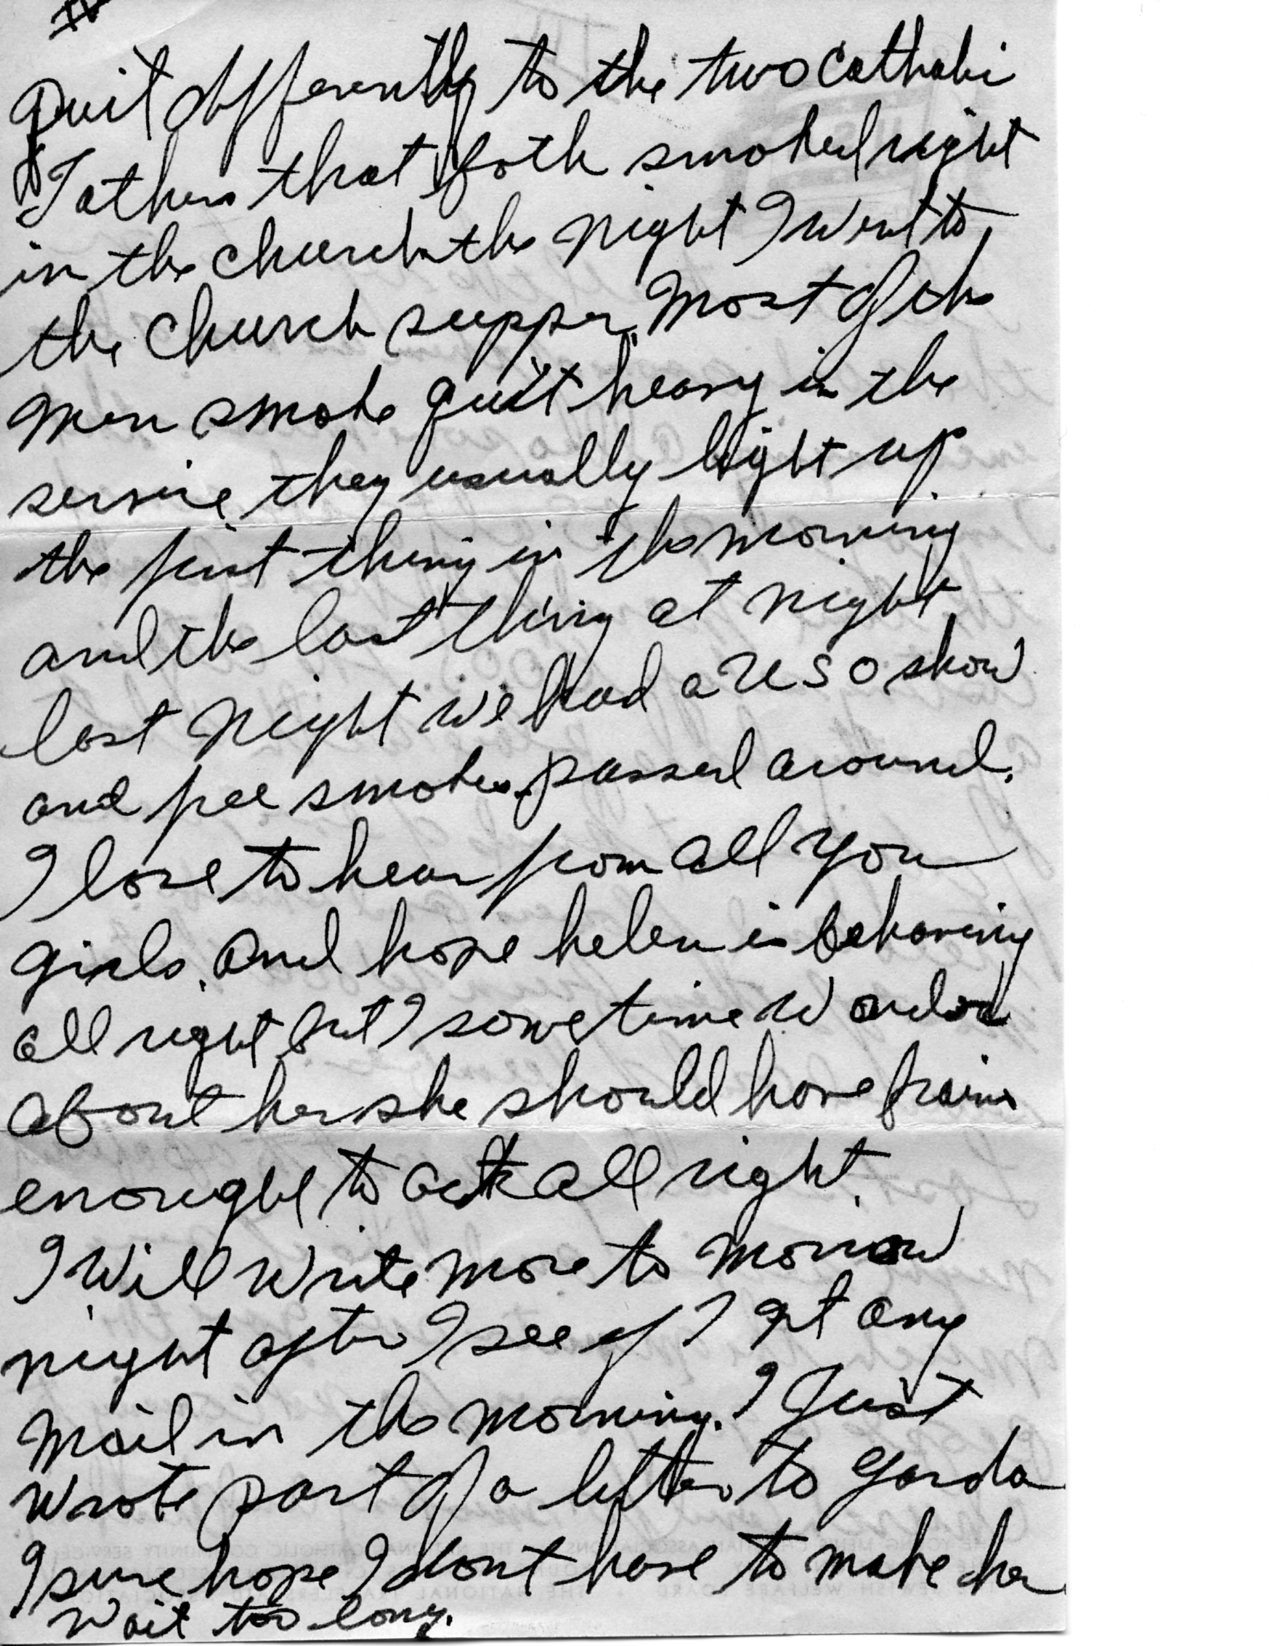 IV
quit differently to the two Catholic
Fathers that both smoked right
in the church the night I went to
the church supper. Most of the
men smoke quit heavy in the
service they usually light up
the first thing in the morning
and the last thing at night
last night we had a USO show
and free smokes passed around.
I love to hear from all you
girls. And hope helen is behaving
all right but I sometime wonder
about her she should have brains
enought to act all right.
I will write more to morrow
night after I see if I get any
mail in the morning. I just
wrote part of a letter to
I sure hope I dont have to make her
wait too long.